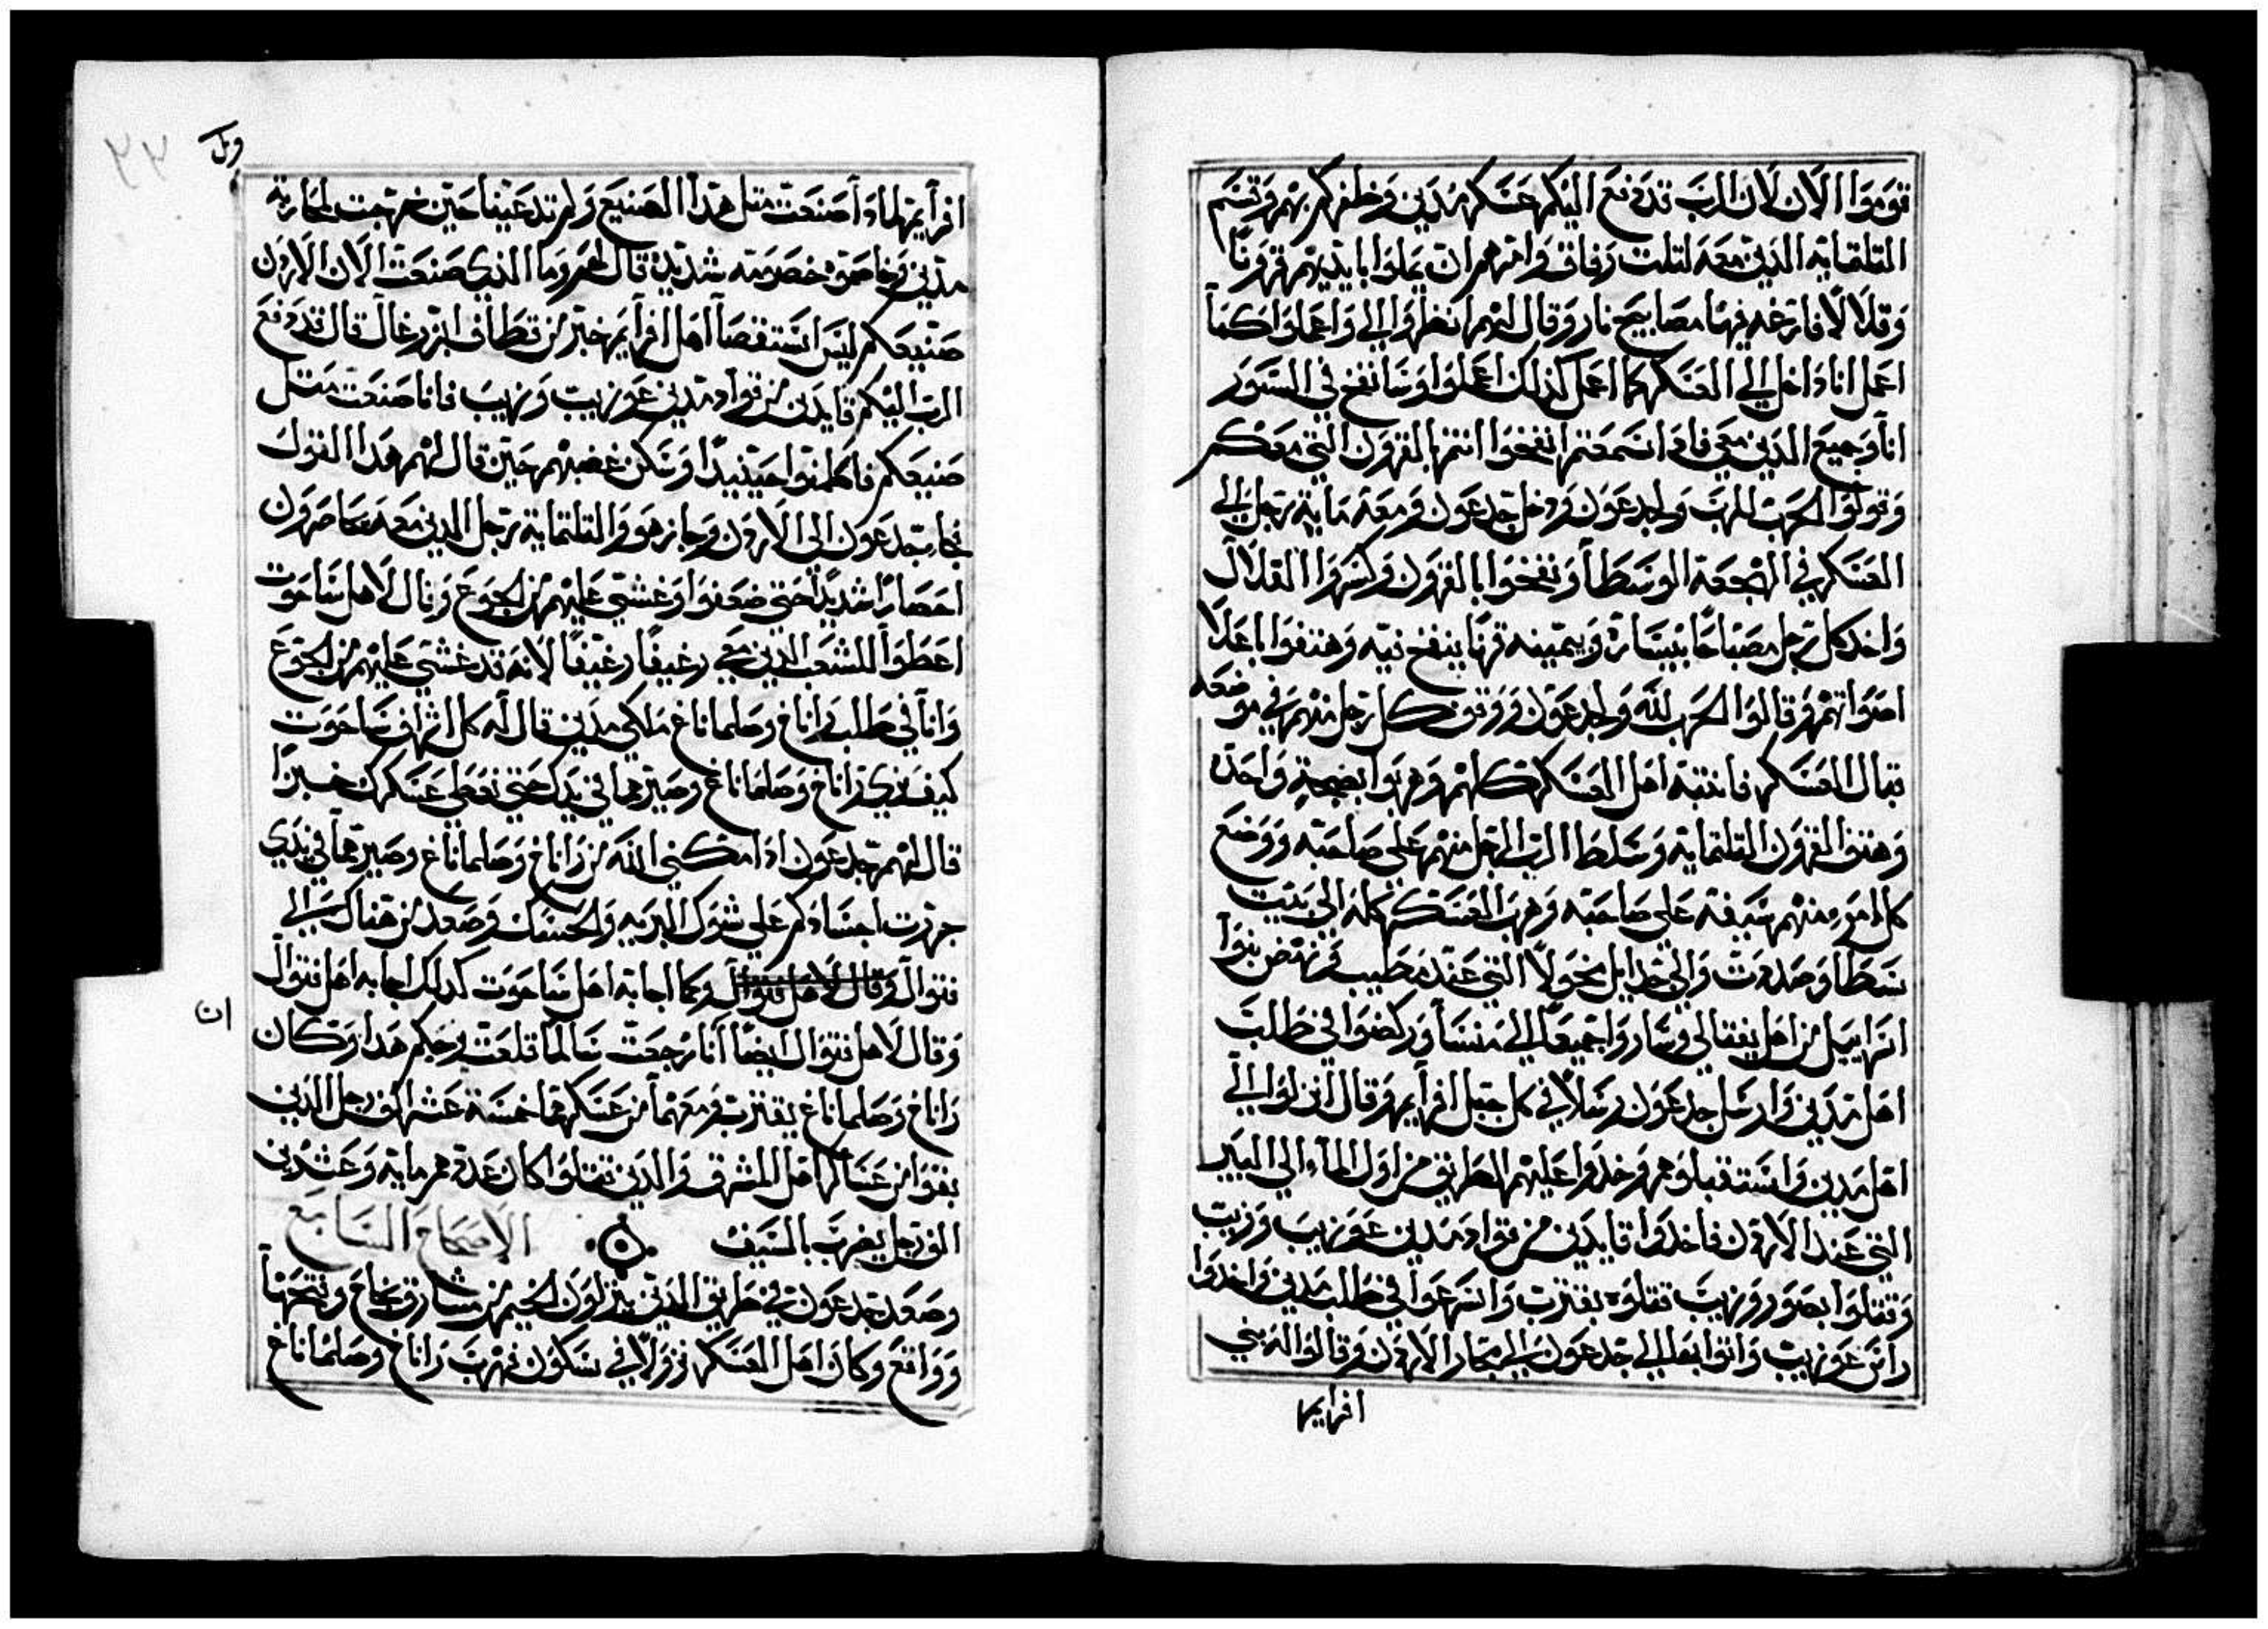 قوموا الان لان الرب قد دفع اليكم عسكر مدين وظفركم بهم وقسم
التلتماية الدين معه لتلت رفاق وامرهم ان يملوا بايديهم قرونا
وقلالا فارغه فيها مصابيح نار وقال لهم انظروا الي واعملوا كما
اعمل انا داخل الي العسكر كما اعمل كذلك اعملوا وسانفخ في السور
انا وجميع الدين معي فادا سمعتم انفخوا انتم بالقرون التي معكم
وقولوا الحرب للرب ولجدعون ودخل جدعون ومعه ماية رجل الي
العسكر في الهجعة الوسطا ونفخوا بالقرون وكسروا القلال
واخد كل رجل مصباحا بيساره ويمينه قرنا ينفخ فيه وهتفوا باعلا
اصواتهم وقالوا الحرب لله ولجدعون ووقف كل رجل منهم في موضعه
قبال العسكر فانتبه اهل العسكر كلهم وهربوا بضجة واحدة
وهتف القرون التلتماية وسلط الرب الرجل منهم علي صاحبه ووضع
كل امرء منهم سيفه علي صاحبه وهرب العسكر كله الي بيت
سطا وصدعت والي ايل محولا التي عند مطيب ونهض بنوا
اسراييل من اهل يفتالي وساروا جميعا الي منسا وركضوا في طلب
اهل مدين وارسل جدعون رسلا في كل جبل افرايم وقال انزلوا الي
اهل مدين واستقبلوهم وخدوا عليهم الطريق من اول الماء الي البير
التي عند الاردن فاخدوا قايدين من قواد مدين عوزيب وزيب
وقتلوا بصور وزيب قتلوه بقترب واسرعوا في طلب مدين واخدوا
راس عوزيب واتوا بها الي جدعون الي مجاز الاردن وقالوا له بني
افرايم
ويل
افرايم لمادا صنعت متل هدا الصنيع ولم تدعينا حين خرجت لمحاربة
مدين وخاصموه خصومه شديده قال لهم وما الذي صنعت الان الاردن
صنيعكم ليس استقصا اهل افرايم خير من قطاف ابزرغال قال قد دفع
الرب اليكم قايدين من قواد مدين عوزيب وزيب فانا صنعت متل
صنيعكم فاطمنوا حينيدا وسكن غضبهم حين قال لهم هدا القول
فجا جدعون الي الاردن وجاز هو والتلتماية رجل الدين معه محاصرون
احصارا شديدا حتي ضعفوا وغشي عليهم من الجوع وقال لاهل ساحوت
اعطوا للشعب الدين معي رغيفا رغيفا لانه قد غشي عليهم من الجوع
وانا في طلب زاناغ وصلماناغ ملكي مدين قال له كل اشراف ساحوت
كيف تري زاناغ وصلماناغ وصيرهما في يدك حتي نعطي عسكرك خبزا
قال لهم جدعون ادا مكني الله من زاناغ وصلماناغ وصيرهما في يدي
جررت اجسادكم علي شوك البريه والحسك وصعد من هناك الي
فنوال وقال لاهل فنوال وكما اجابه اهل ساحوت كدلك اجابه اهل فنوال
وقال لاهل فنوال ايضا انا رجعت سالما قلعت برجكم هدا وكان
ان
زاناغ وصلماناغ بقترب ومعهما من عسكرهما خمسة عشر الف رجل الدين
بقوا من عساكر اهل المشرق والدين قتلوا كان عدتهم ماية وعشرين
الف رجل يضرب بالسيف الاصحاح السابع
وصعد جدعون في طريق الدين ينزلون الخيم من مشارق نجاح وفتحها
وواقع وكانوا اهل العسكر نزولا في سكون فهرب زاناغ وصلماناغ